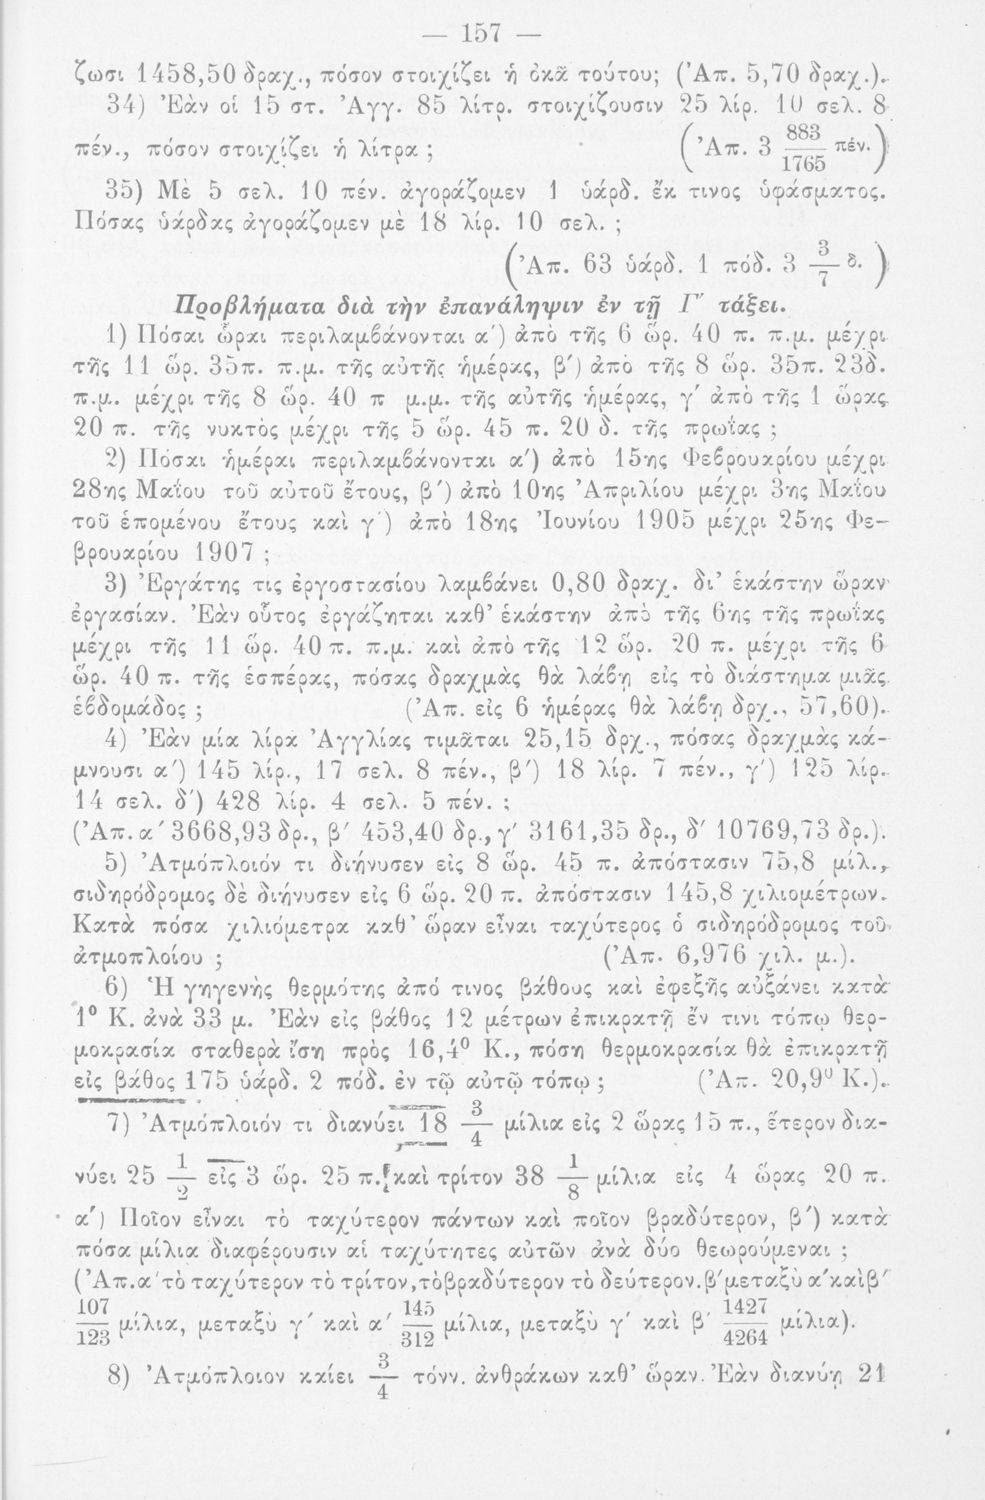 — 157 —
ζωσι 1458,50 δραχ., πόσον στοιχίζει ἡ ὀκᾶ τούτου; (Ἀπ. 5,70 δραχ.).
34) Ἐὰν οἱ 15 στ. Ἀγγ. 85 λίτρ. στοιχίζουσιν 25 λίρ. 10 σελ. 8
πέν., πόσον στοιχίζει ἡ λίτρα ; (Ἀπ. 3 883/1765 πέν.)
35) Μὲ 5 σελ. 10 πέν. ἀγοράζομεν 1 ὑάρδ. ἔκ τινος ὑφάσματος.
Πόσας ὑάρδας ἀγοράζομεν μὲ 18 λίρ. 10 σελ. ;
(Ἀπ. 63 ὑάρδ. 1 πόδ. 3 3/7 δ.)
Προβλήματα διὰ τὴν ἐπανάληψιν ἐν τῇ Γ΄ τάξει.
1) Πόσαι ὧραι περιλαμβάνονται α΄) ἀπὸ τῆς 6 ὥρ. 40 π. π.μ. μέχρι
τῆς 11 ὥρ. 35π. π.μ. τῆς αὐτῆς ἡμέρας, β΄) ἀπὸ τῆς 8 ὥρ. 35π. 23δ.
π.μ. μέχρι τῆς 8 ὥρ. 40 π μ.μ. τῆς αὐτῆς ἡμέρας, γ΄ ἀπὸ τῆς 1 ὥρας
20 π. τῆς νυκτὸς μέχρι τῆς 5 ὥρ. 45 π. 20 δ. τῆς πρωΐας ;
2) Πόσαι ἡμέραι περιλαμβάνονται α΄) ἀπὸ 15ης Φεβρουαρίου μέχρι
28ης Μαΐου τοῦ αὐτοῦ ἔτους, β΄) ἀπὸ 10ης Ἀπριλίου μέχρι 3ης Μαΐου
τοῦ ἑπομένου ἔτους καὶ γ΄) ἀπὸ 18ης Ἰουνίου 1905 μέχρι 25ης Φε-
βρουαρίου 1907 ;
3) Ἐργάτης τις ἐργοστασίου λαμβάνει 0,80 δραχ. δι’ ἑκάστην ὥραν
ἐργασίαν. Ἐὰν οὗτος ἐργάζηται καθ’ ἑκάστην ἀπὸ τῆς 6ης τῆς πρωΐας
μέχρι τῆς 11 ὥρ. 40 π. π.μ. καὶ ἀπὸ τῆς 12 ὥρ. 20 π. μέχρι τῆς 6
ὥρ. 40 π. τῆς ἑσπέρας, πόσας δραχμὰς θὰ λάβῃ εἰς τὸ διάστημα μιᾶς
ἑβδομάδος ; (Ἀπ. εἰς 6 ἡμέρας θὰ λάβῃ δρχ., 57,60).
4) Ἐὰν μία λίρα Ἀγγλίας τιμᾶται 25,15 δρχ., πόσας δραχμὰς κά-
μνουσι α΄) 145 λίρ., 17 σελ. 8 πέν., β΄) 18 λίρ. 7 πέν., γ΄) 125 λίρ.
14 σελ. δ΄) 428 λίρ. 4 σελ. 5 πέν. ;
(Ἀπ. α΄ 3668,93 δρ., β΄ 453,40 δρ., γ΄ 3161,35 δρ., δ΄ 10769,73 δρ.).
5) Ἀτμόπλοιόν τι διήνυσεν εἰς 8 ὥρ. 45 π. ἀπόστασιν 75,8 μίλ.,
σιδηρόδρομος δὲ διήνυσεν εἰς 6 ὥρ. 20 π. ἀπόστασιν 145,8 χιλιομέτρων.
Κατὰ πόσα χιλιόμετρα καθ’ ὥραν εἶναι ταχύτερος ὁ σιδηρόδρομος τοῦ
ἀτμοπλοίου ; (Ἀπ. 6,976 χιλ. μ.).
6) Ἡ γηγενὴς θερμότης ἀπό τινος βάθους καὶ ἐφεξῆς αὐξάνει κατὰ
1⁰ Κ. ἀνὰ 33 μ. Ἐὰν εἰς βάθος 12 μέτρων ἐπικρατῇ ἔν τινι τόπῳ θερ-
μοκρασία σταθερὰ ἴση πρὸς 16,4⁰ Κ., πόση θερμοκρασία θὰ ἐπικρατῇ
εἰς βάθος 175 ὑάρδ. 2 πόδ. ἐν τῷ αὐτῷ τόπῳ ; (Ἀπ. 20,9⁰ Κ.).
7) Ἀτμόπλοιόν τι διανύει 18 3/4 μίλια εἰς 2 ὥρας 15 π., ἕτερον δια-
νύει 25 1/2 εἰς 3 ὥρ. 25 π. καὶ τρίτον 38 1/8 μίλια εἰς 4 ὥρας 20 π.
α΄) Ποῖον εἶναι τὸ ταχύτερον πάντων καὶ ποῖον βραδύτερον, β΄) κατὰ
πόσα μίλια διαφέρουσιν αἱ ταχύτητες αὐτῶν ἀνὰ δύο θεωρούμεναι ;
(Ἀπ. α΄ τὸ ταχύτερον τὸ τρίτον, τὸ βραδύτερον τὸ δεύτερον. β΄ μεταξὺ α΄ καὶ β΄
107/123 μίλια, μεταξὺ γ΄ καὶ α΄ 145/312 μίλια, μεταξὺ γ΄ καὶ β΄ 1427/4264 μίλια).
8) Ἀτμόπλοιον καίει 3/4 τόνν. ἀνθράκων καθ’ ὥραν. Ἐὰν διανύῃ 21